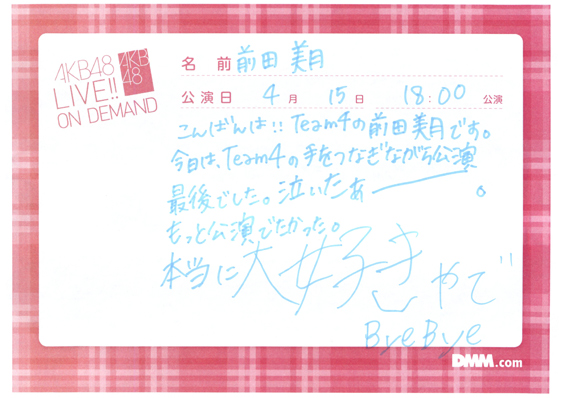 AKB48
LIVE!!
ON DEMAND
AKB
48
名 前 前田 美月
公演日 4 月 15 日 18:00 公演
こんばんは!! Team4の前田美月です。
今日は、Team4の手をつなぎながら公演
最後でした。泣いたあー。
もっと公演でたかった。
本当に大好きやで
ByeBye
DMM.com